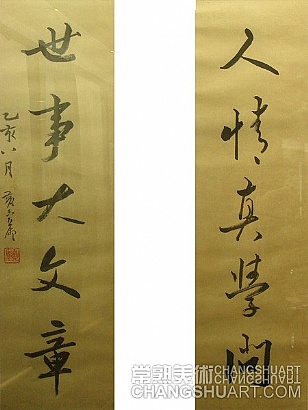 人情真學問
世事大文章
乙亥八月
常熟美術 CHANGSHUART
CHANGSHUART.COM